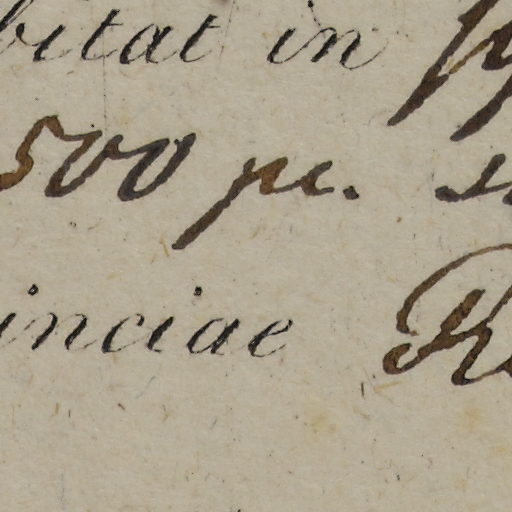 bitat in
500 pe.
inciae